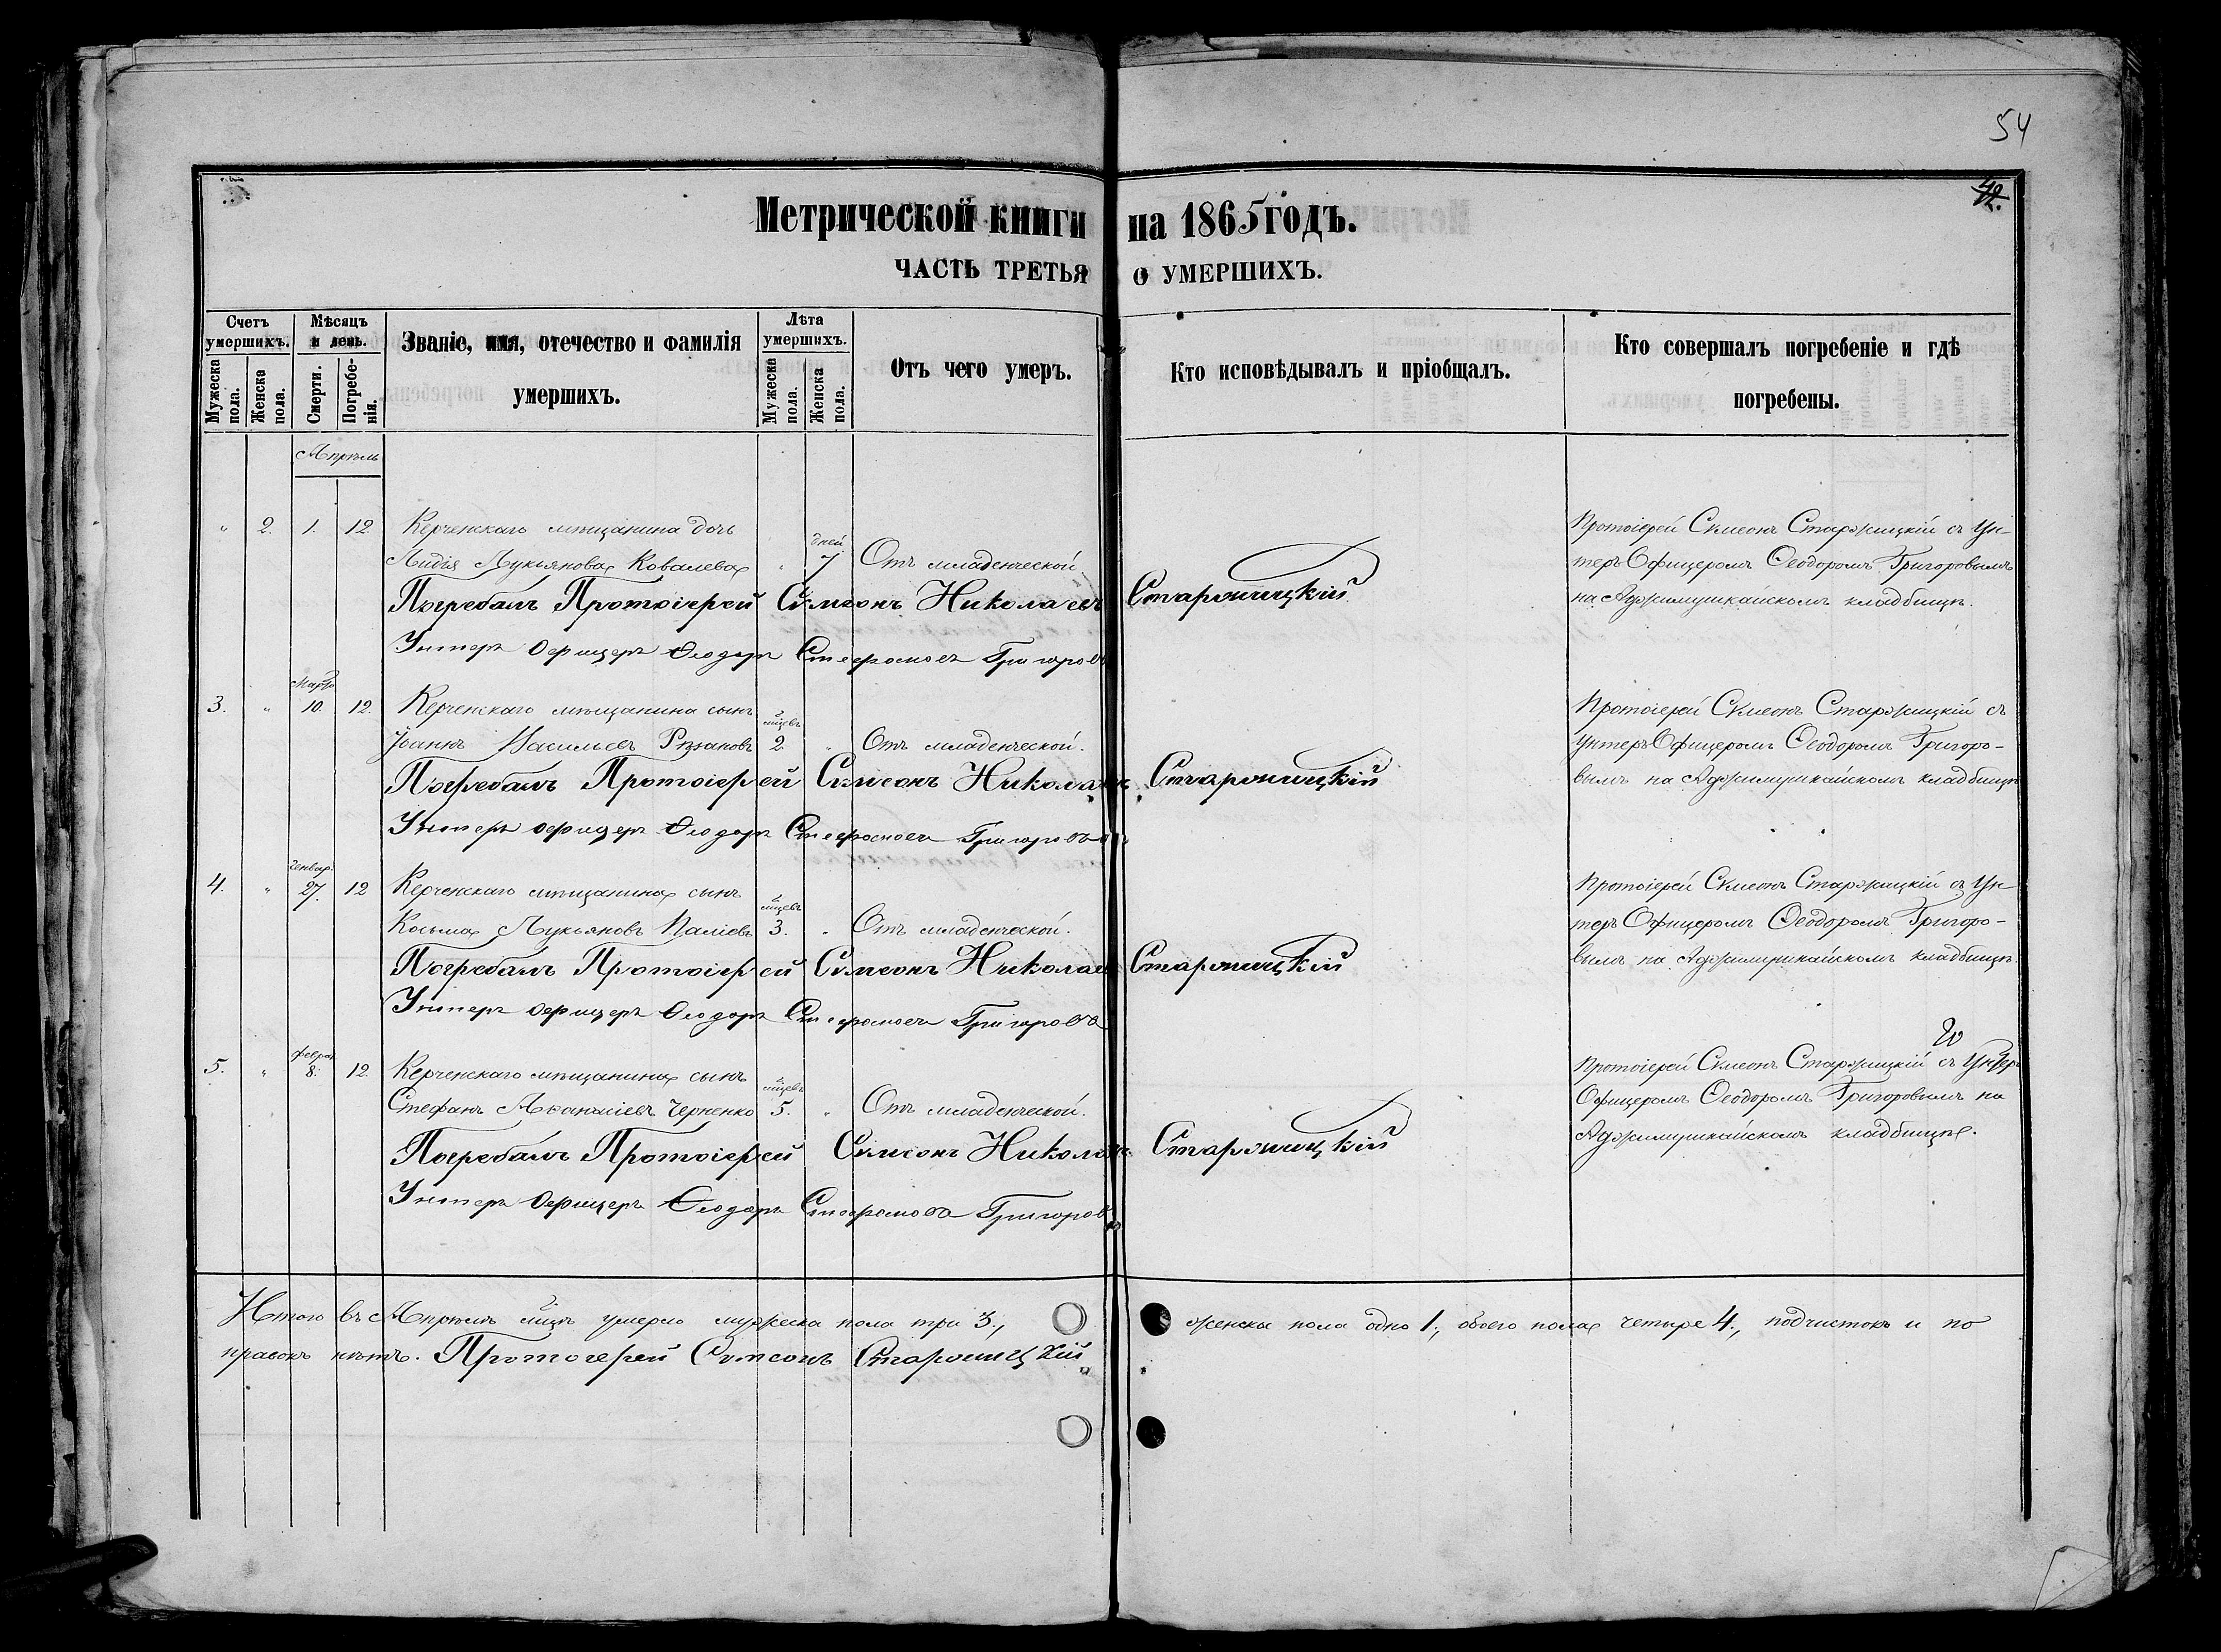 54
42.
Метрической книги на 1865 годъ.
ЧАСТЬ ТРЕТЬЯ О УМЕРШИХЪ.
Счетъ умершихъ.
Мужеска пола.
Женска пола.
Мѣсяцъ и день.
Смерти.
Погребенія.
Званіе, имя, отечество и фамилія
умершихъ.
Лѣта умершихъ.
Мужеска пола.
Женска пола.
Отъ чего умеръ.
Кто исповѣдывалъ и пріобщалъ.
Кто совершалъ погребеніе и гдѣ
погребены.
Апрѣль
" 2. 1. 12. Керченскаго мѣщанина дочь
Лидія Лукьянова Ковалева " дней 7 Отъ младенческой.
Протоіерей Сѵмеонъ Старжицкій съ Ун-
теръ Офицеромъ Ѳеодоромъ Григоровымъ
на Аджимушкайскомъ кладбищѣ.
Погребалъ Протоіерей Сѵмеонъ Николаевъ Старжицкій
Унтеръ Офицеръ Ѳеодоръ Стефановъ Григоровъ
3. " Марта 10. 12. Керченскаго мѣщанина сынъ
Іоаннъ Васильевъ Рѣзановъ мцевъ 2. " Отъ младенческой.
Протоіерей Сѵмеонъ Старжицкій съ
Унтеръ Офицеромъ Ѳеодоромъ Григоро-
вымъ на Аджимушкайскомъ кладбищѣ
Погребалъ Протоіерей Сѵмеонъ Николаевъ Старжицкій
Унтеръ Офицеръ Ѳеодоръ Стефановъ Григоровъ
4. " Генвар. 27. 12 Керченскаго мѣщанина сынъ
Косьма Лукьяновъ Паліевъ мцевъ 3. " Отъ младенческой.
Протоіерей Сѵмеонъ Старжицкій съ Ун-
теръ Офицеромъ Ѳеодоромъ Григоро-
вымъ на Аджимушкайскомъ кладбищѣ.
Погребалъ Протоіерей Сѵмеонъ Николаевъ Старжицкій
Унтеръ Офицеръ Ѳеодоръ Стефановъ Григоровъ
5. " Феврал. 8. 12. Керченскаго мѣщанина сынъ
Стефанъ Аѳанасіевъ Черненко мцевъ 5. " Отъ младенческой.
Протоіерей Сѵмеонъ Старжицкій съ Унтеръ
Офицеромъ Ѳеодоромъ Григоровымъ на
Аджимушкайскомъ кладбищѣ.
Погребалъ Протоіерей Сѵмеонъ Николаевъ Старжицкій
Унтеръ Офицеръ Ѳеодоръ Стефановъ Григоровъ
Итого въ Апрѣлѣ мцѣ умерло мужеска пола три 3., женска пола одно 1., обоего пола четыре 4., подчистокъ и по
правокъ нѣтъ. Протоіерей Сѵмеонъ Старжицкій